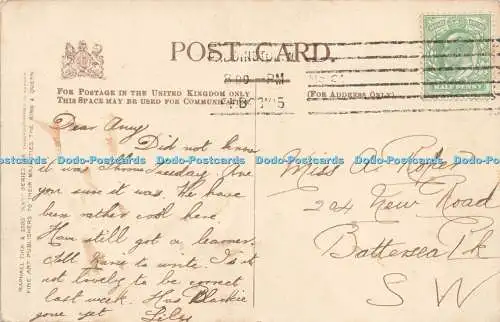 POST CARD.
8.00 PM
FOR POSTAGE IN THE UNITED KINGDOM ONLY
THIS SPACE MAY BE USED FOR COMMUNICATION
(FOR ADDRESS ONLY)
HALFPENNY
RAPHAEL TUCK & SONS'
FINE ART PUBLISHERS TO THEIR MAJESTIES THE KING & QUEEN
Dear Amy
Did not know
it was Tuesday. Are
you sure it was. We have
been rather cool here.
Have still got a learner.
to write. Is it
not lovely to be correct
last week. Has
gone yet Lily
Miss A. Roper
224 New Road
Battersea Pk
S W
Dodo-Postcards Dodo-Postcards Dodo-Postcards Dodo-Postcards Dodo-Postcards
Dodo-Postcards Dodo-Postcards Dodo-Postcards Dodo-Postcards Dodo-Postcards